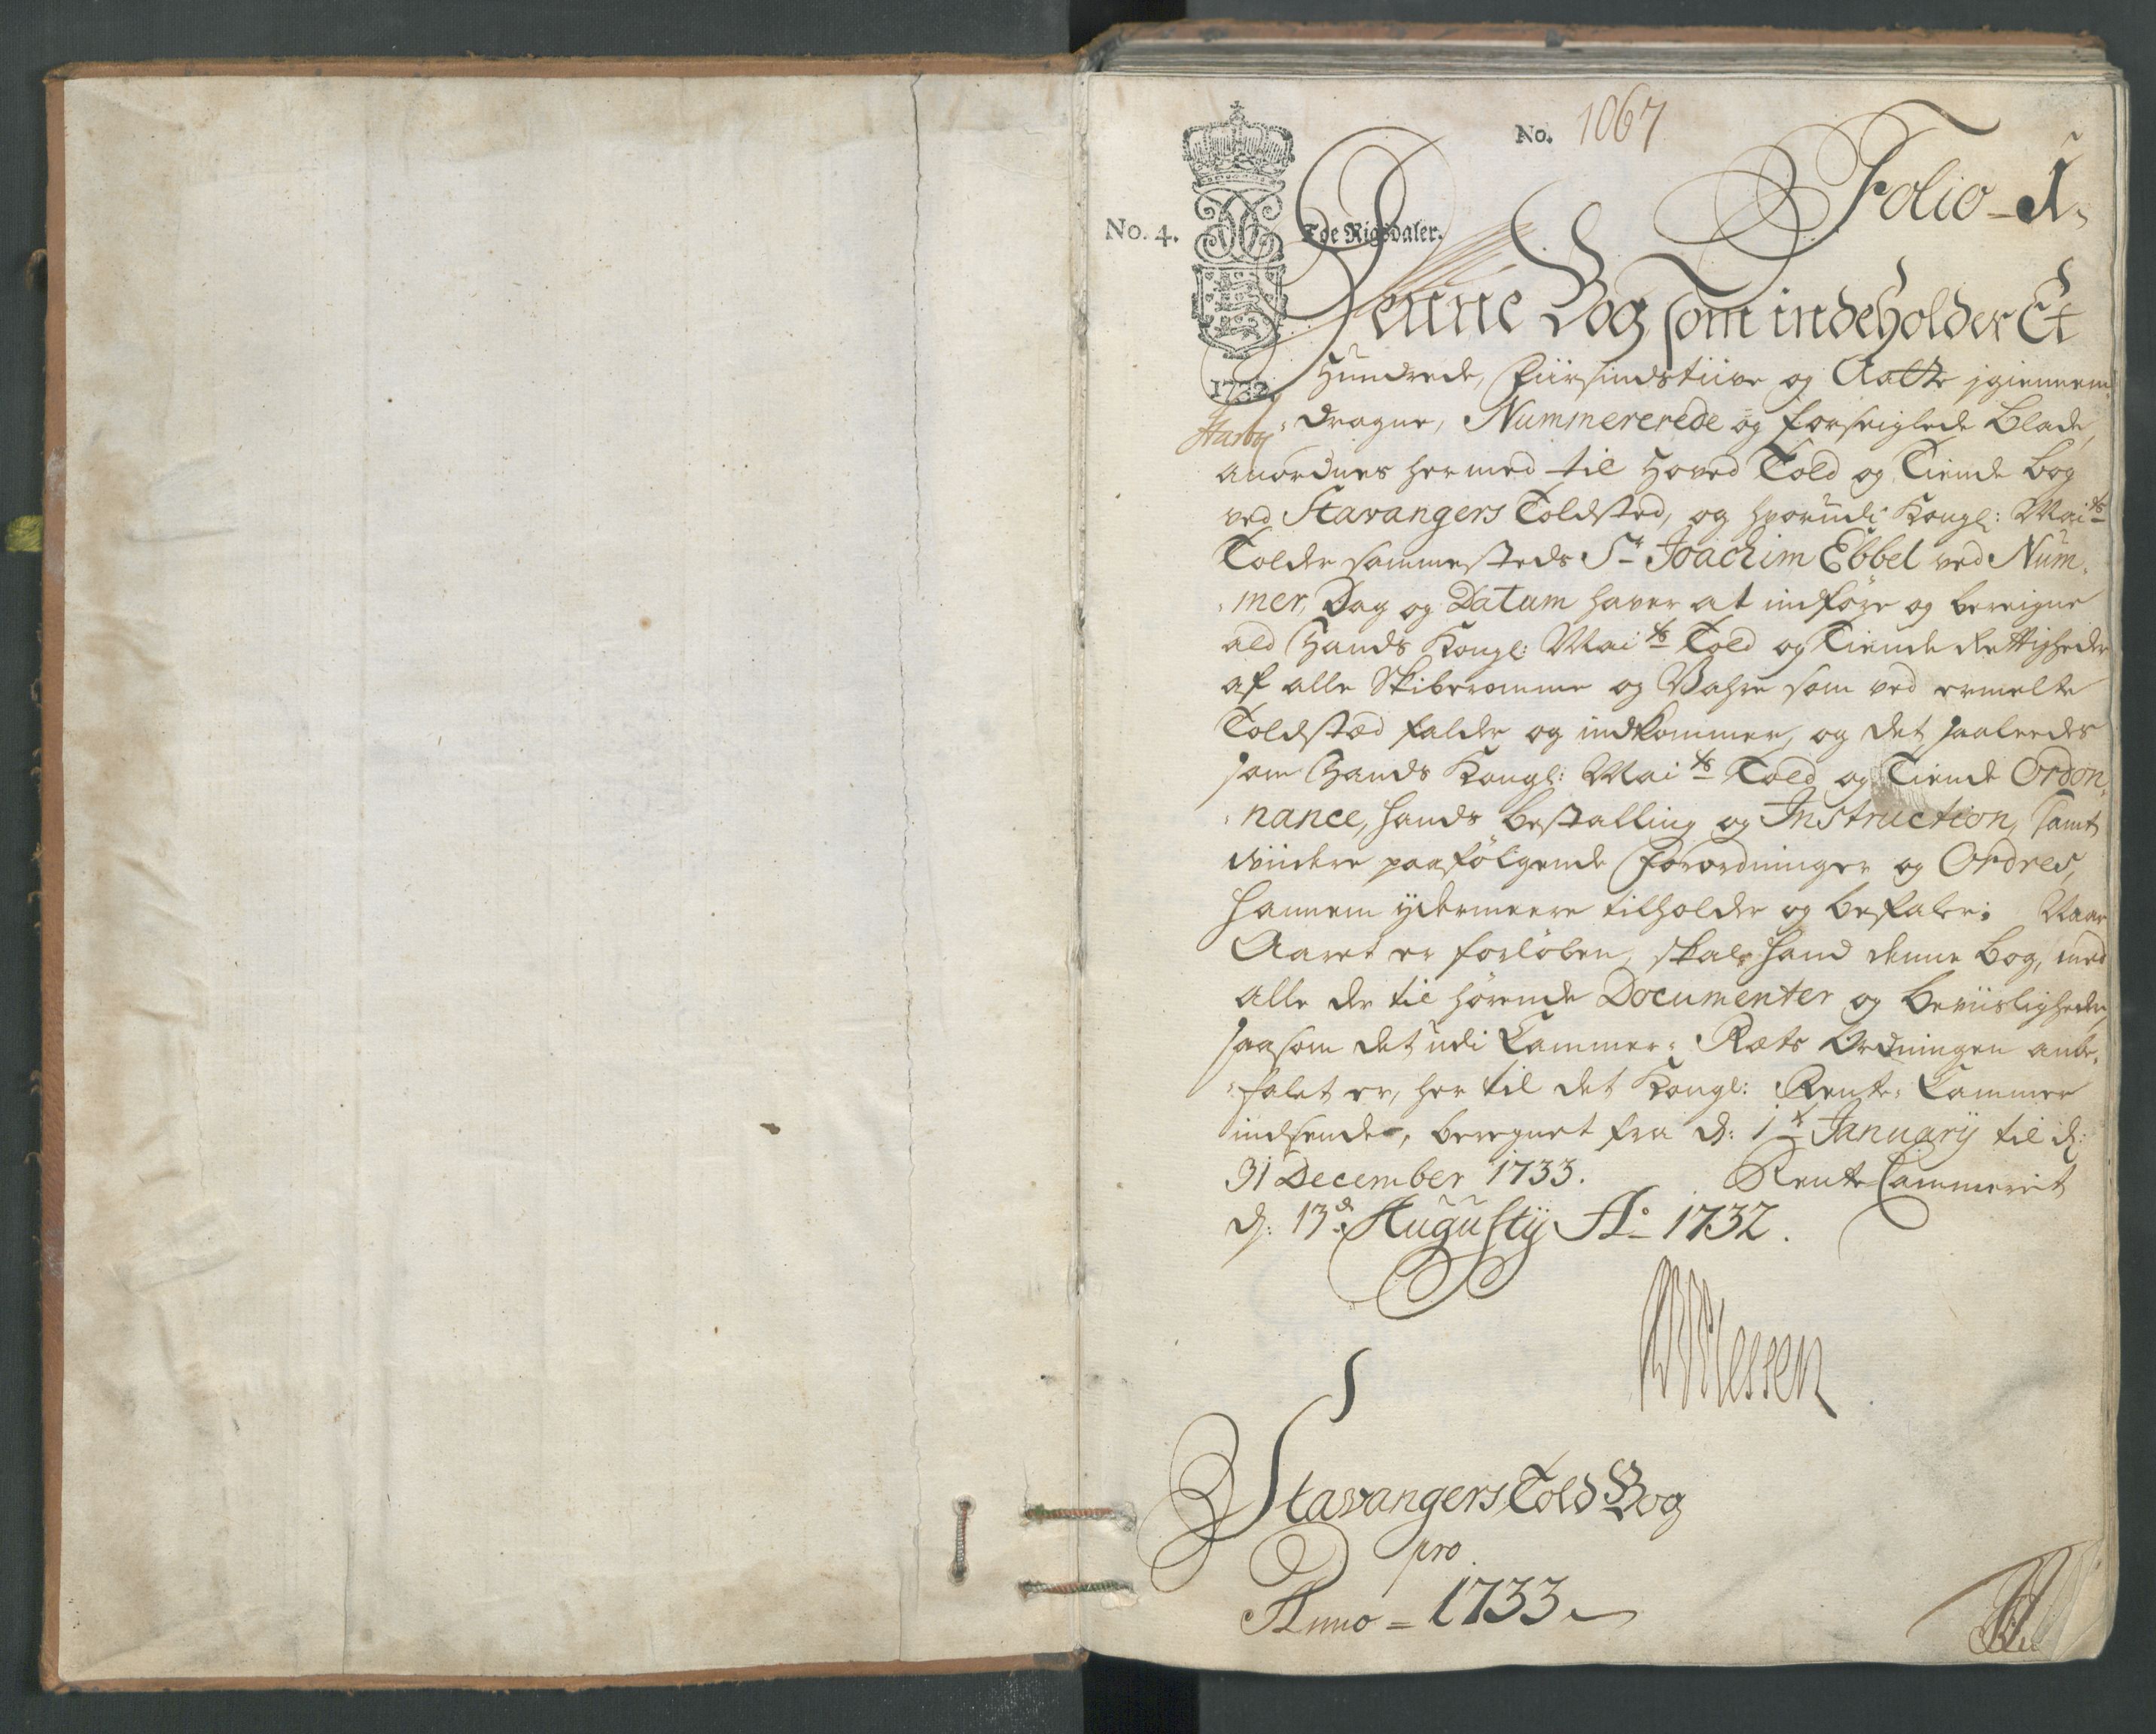 No. 1067
Folio - 1.
No. 4. Tde Rigsdaler.
Denne Bog som indeholder Et
1732
Hundrede, Fiirsindstiive og Aatte igiennem
dragne, Nummererede og forseiglede Blade,
anordnes hermed til Hoved Told og Tiende bog
ved Stavangers Toldsted, og hvorudi Kongl: Maits
Tolder sammesteds Sr Joachim Ebbel ved Num-
mer, Dag og Datum haver at indføre og bereigne
ald Hands Kongl: Maits Told og Tiende Rettigheder
af alle Skiberomme og Vahre som ved ermelte
Toldsted falder og indkommer, og det saaleedes
som Hands Kongl: Maits Told og Tiende Ordon-
nance, hands bestalling og Instruction, samt
viidere paafølgende Forordninger og Ordres,
hannem ydermeere tilholder og befaler; Naar
Aaret er forløben, skal hand denne bog, med
alle der til hørende Documenter og beviisligheder,
saasom det udi Cammer-Rets Ordningen anbe-
falet er, her til det Kongl: Rente-Cammer
indsende, beregnet fra d: 1t January til d:
31 December 1733. Rente Cammerit
d: 13d Augustij Ao 1732.
Stavangers Told Bog
pro
Anno = 1733